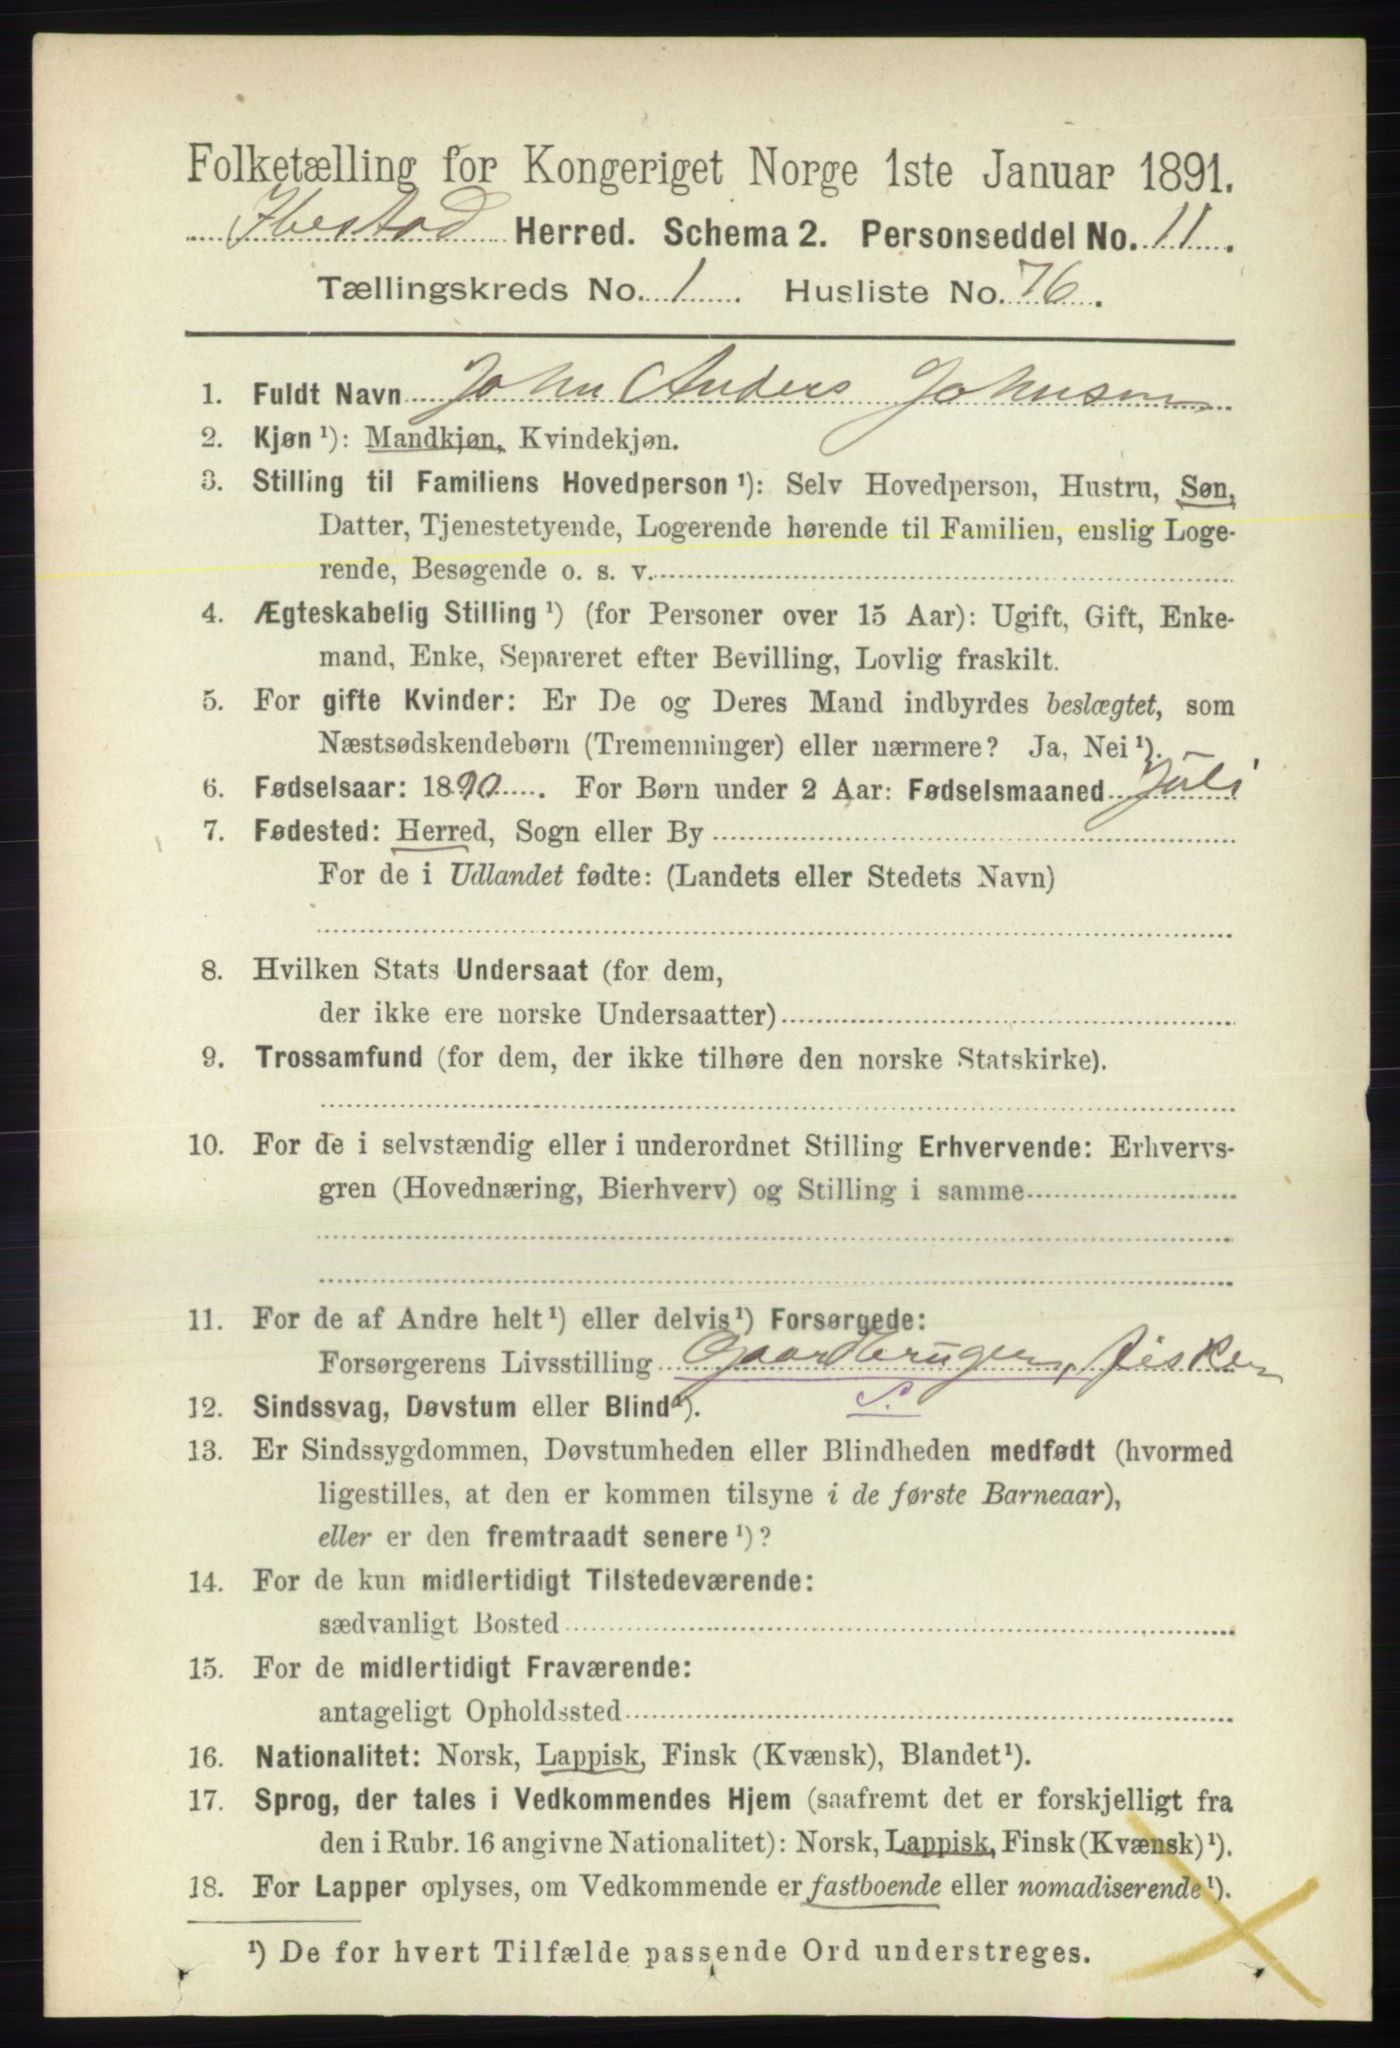 Folketælling for Kongeriget Norge 1ste Januar 1891.
Ibestad Herred. Schema 2. Personseddel No. 11.
Tællingskreds No. 1. Husliste No. 76.
1. Fuldt Navn John Anders Johnsen
2. Kjøn ¹): Mandkjøn, Kvindekjøn.
3. Stilling til Familiens Hovedperson ¹): Selv Hovedperson, Hustru, Søn,
Datter, Tjenestetyende, Logerende hørende til Familien, enslig Loge-
rende, Besøgende o. s. v.
4. Ægteskabelig Stilling ¹) (for Personer over 15 Aar): Ugift, Gift, Enke-
mand, Enke, Separeret efter Bevilling, Lovlig fraskilt.
5. For gifte Kvinder: Er De og Deres Mand indbyrdes beslægtet, som
Næstsødskendebørn (Tremenninger) eller nærmere? Ja, Nei ¹).
6. Fødselsaar: 1890. For Børn under 2 Aar: Fødselsmaaned Juli
7. Fødested: Herred, Sogn eller By
For de i Udlandet fødte: (Landets eller Stedets Navn)
8. Hvilken Stats Undersaat (for dem,
der ikke ere norske Undersaatter)
9. Trossamfund (for dem, der ikke tilhøre den norske Statskirke).
10. For de i selvstændig eller i underordnet Stilling Erhvervende: Erhvervs-
gren (Hovednæring, Bierhverv) og Stilling i samme
11. For de af Andre helt ¹) eller delvis ¹) Forsørgede:
Forsørgerens Livsstilling Gaardbruger, Fisker
S.
12. Sindssvag, Døvstum eller Blind ¹).
13. Er Sindssygdommen, Døvstumheden eller Blindheden medfødt (hvormed
ligestilles, at den er kommen tilsyne i de første Barneaar),
eller er den fremtraadt senere ¹)?
14. For de kun midlertidigt Tilstedeværende:
sædvanligt Bosted
15. For de midlertidigt Fraværende:
antageligt Opholdssted
16. Nationalitet: Norsk, Lappisk, Finsk (Kvænsk), Blandet ¹).
17. Sprog, der tales i Vedkommendes Hjem (saafremt det er forskjelligt fra
den i Rubr. 16 angivne Nationalitet): Norsk, Lappisk, Finsk (Kvænsk) ¹).
18. For Lapper oplyses, om Vedkommende er fastboende eller nomadiserende ¹).
¹) De for hvert Tilfælde passende Ord understreges.